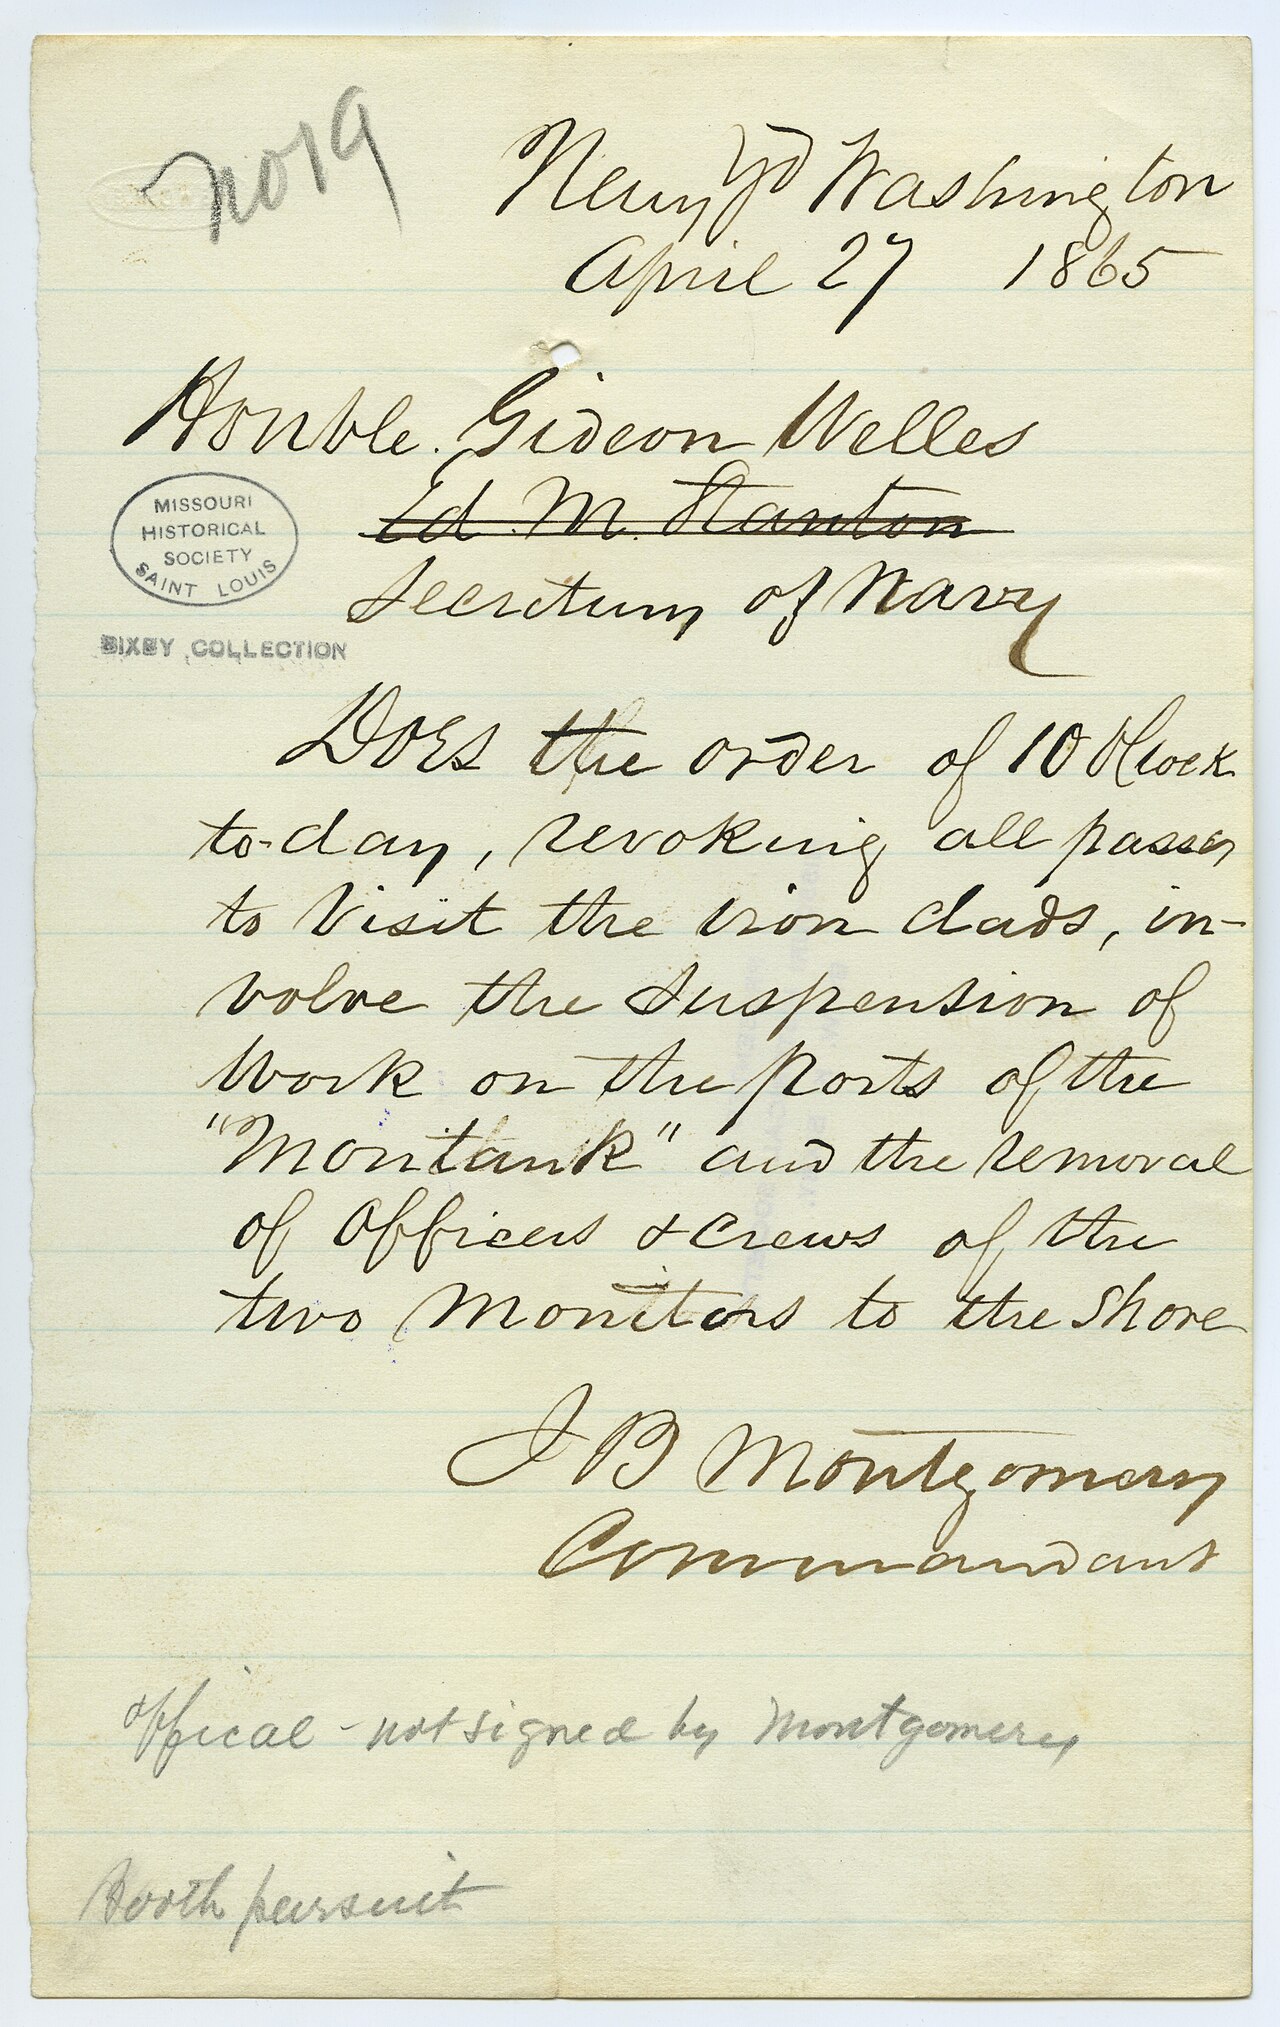 No 19
Navy Yd Washington
April 27 1865
Honble. Gideon Welles
Ed. M. Stanton
Secretary of Navy
MISSOURI
HISTORICAL
SOCIETY
SAINT LOUIS
BIXBY COLLECTION
Does the order of 10 O'Clock
to-day, revoking all passes
to visit the iron clads, in-
volve the suspension of
work on the ports of the
"Montauk" and the removal
of officers & crews of the
two Monitors to the shore
J B Montgomery
Commandant
offical - not signed by Montgomery
Booth pursuit